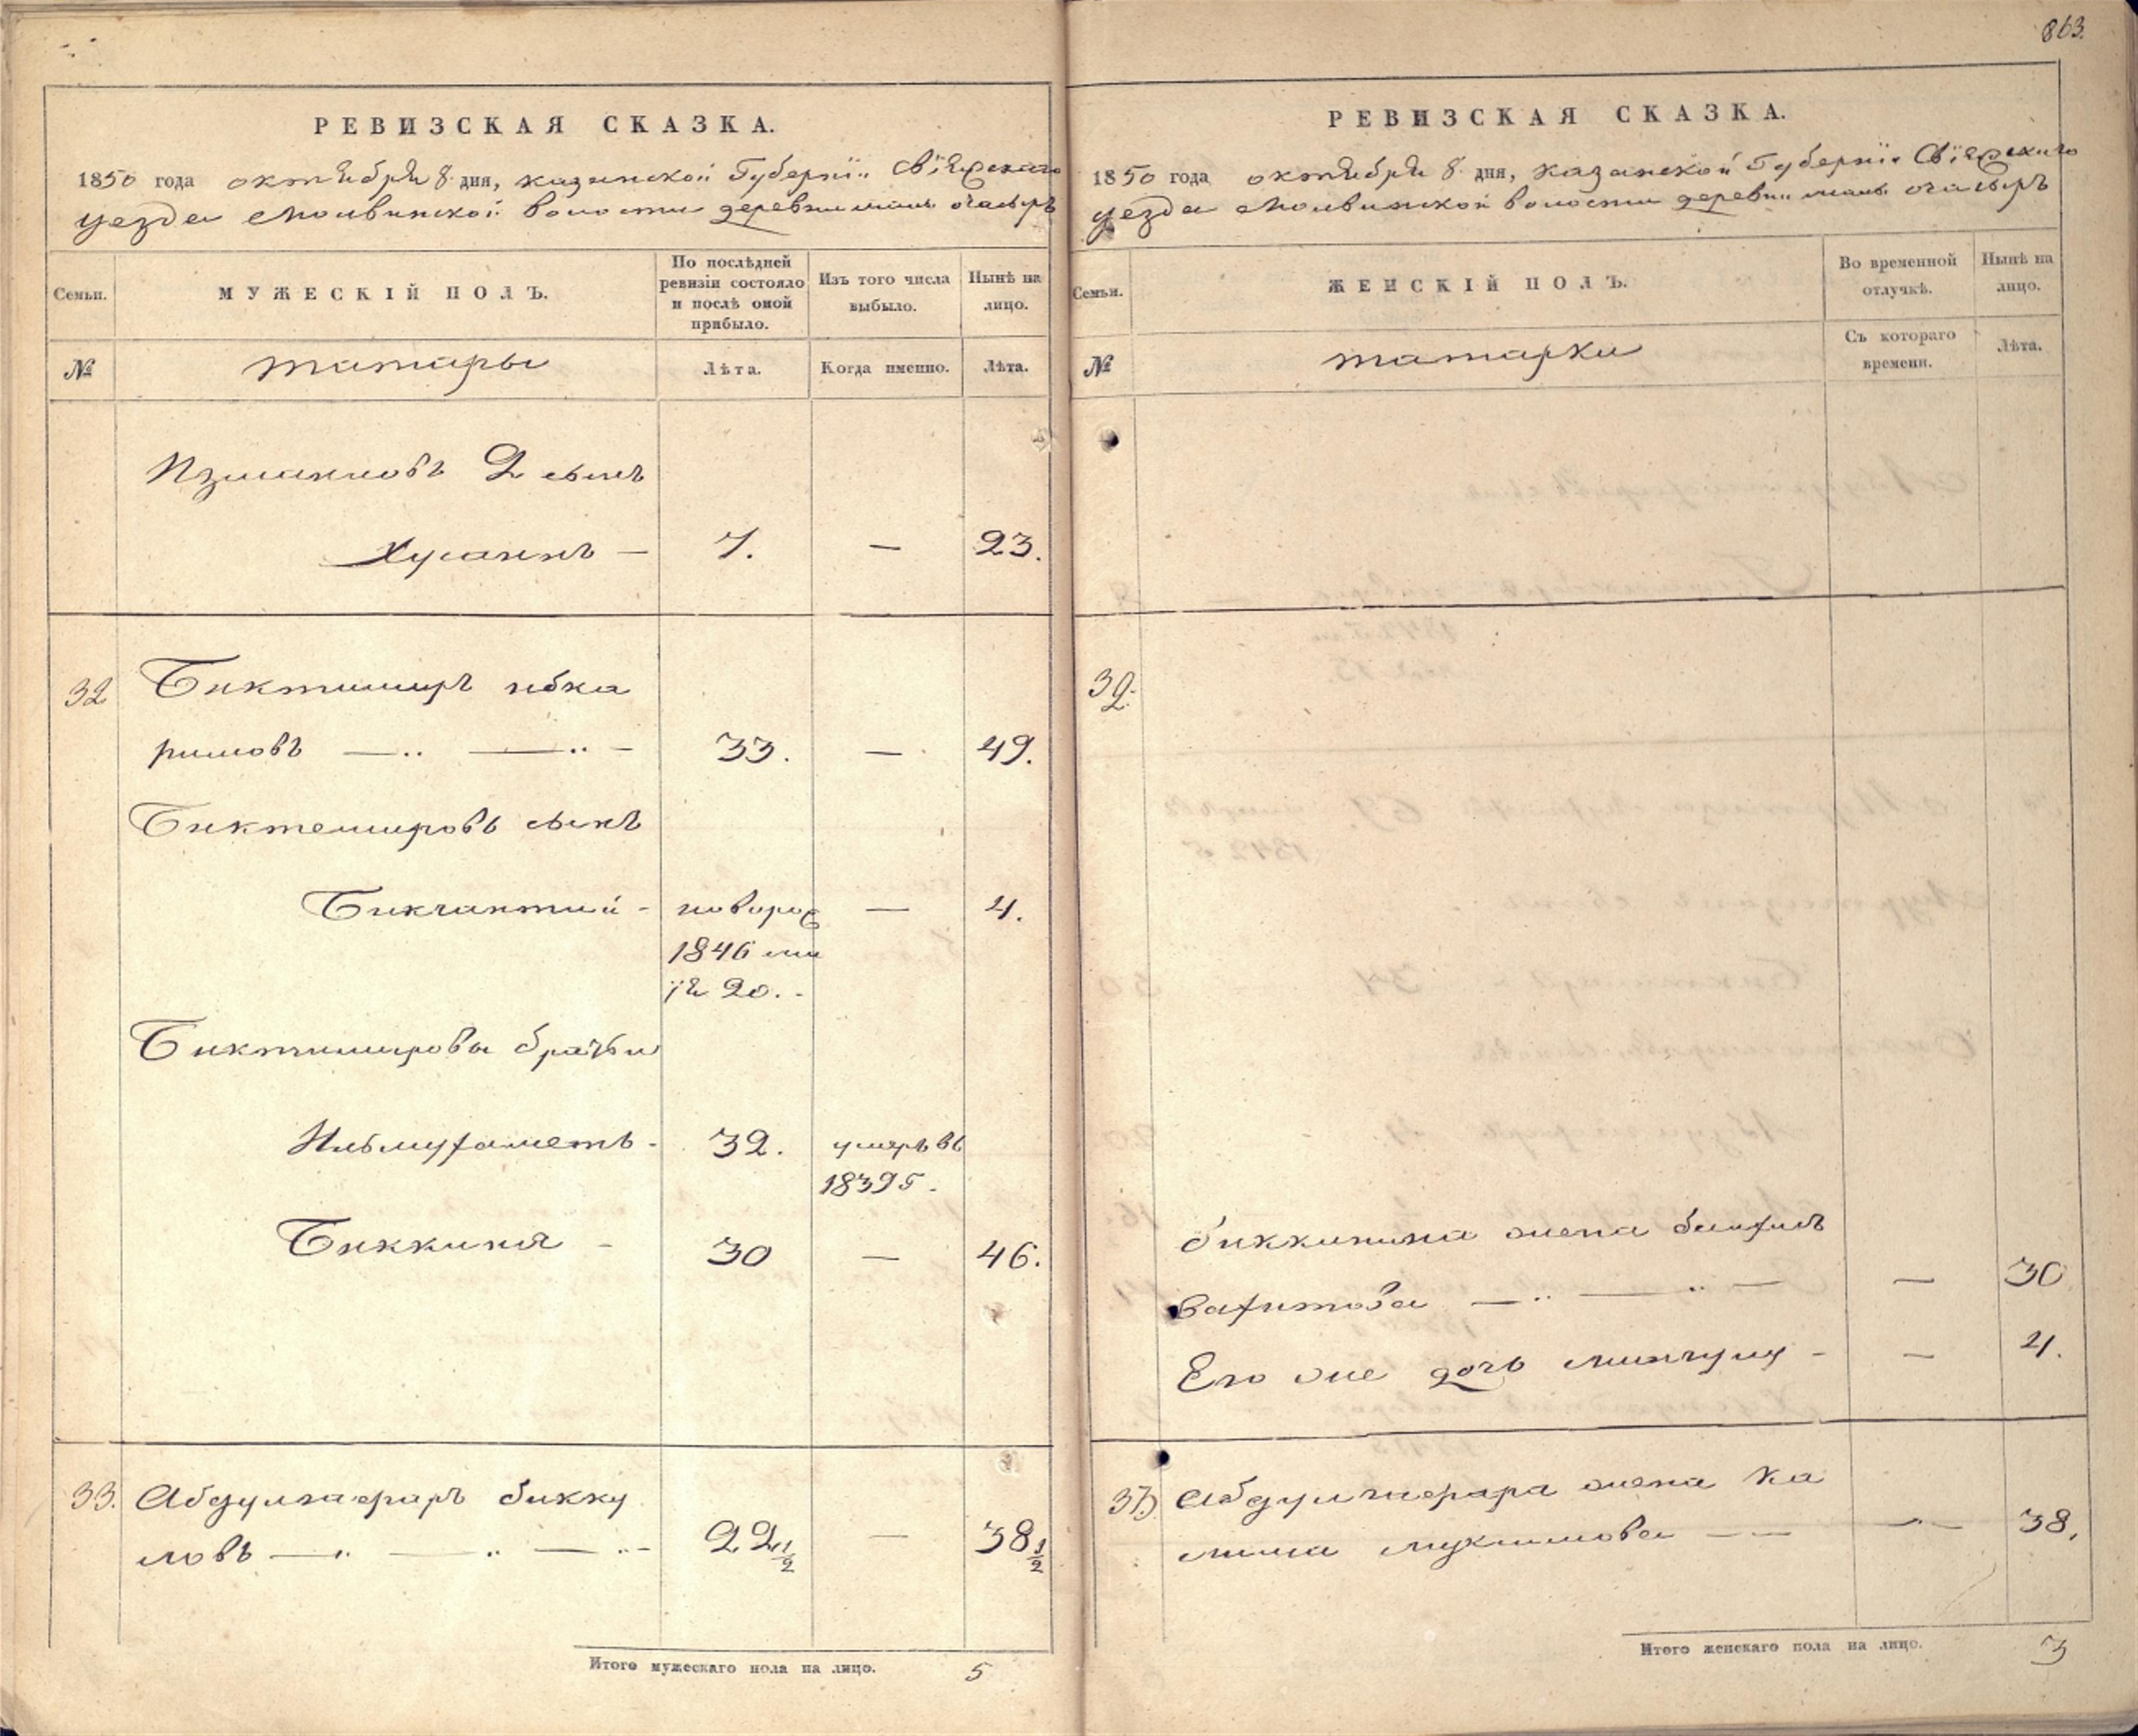 863.
РЕВИЗСКАЯ СКАЗКА.
1850 года октября 8 дня, казанской Губернїи Свїяжскаго
уезда Молвинской волости деревни малы очасыръ
Семьи.
МУЖЕСКІЙ ПОЛЪ.
По послѣдней ревизіи состояло и послѣ оной прибыло.
Изъ того числа выбыло.
Нынѣ на лицо.
№
татары
Лѣта.
Когда именно.
Лѣта.
2 сынъ
Хусаинъ — 7. — 23.
32 Биктимиръ ибка
римовъ — 33. — 49.
Биктемировъ сынъ
Бикчантий - новорож — 4.
1846 ма
їя 20. -
Биктимировы братья
Ильмухаметь - 32. умеръ въ
1839 г.
Биккиня - 30 — 46.
33. Абдулгафаръ бикку
ловъ — 22 1/2 — 38 1/2
Итого мужескаго пола на лицо. 5
РЕВИЗСКАЯ СКАЗКА.
1850 года октября 8 дня, казанской Губернїи Свїяжскаго
уезда Молвинской волости деревни малы очасыръ
Семьи.
ЖЕНСКІЙ ПОЛЪ.
Во временной отлучкѣ.
Нынѣ на лицо.
№
татарки
Съ котораго времени.
Лѣта.
32.
биккинина жена
вахитова — — 30
Его же дочь - — 4.
33 Абдулгафара жена Ка
мила мукимова — — 38.
Итого женскаго пола на лицо. 3